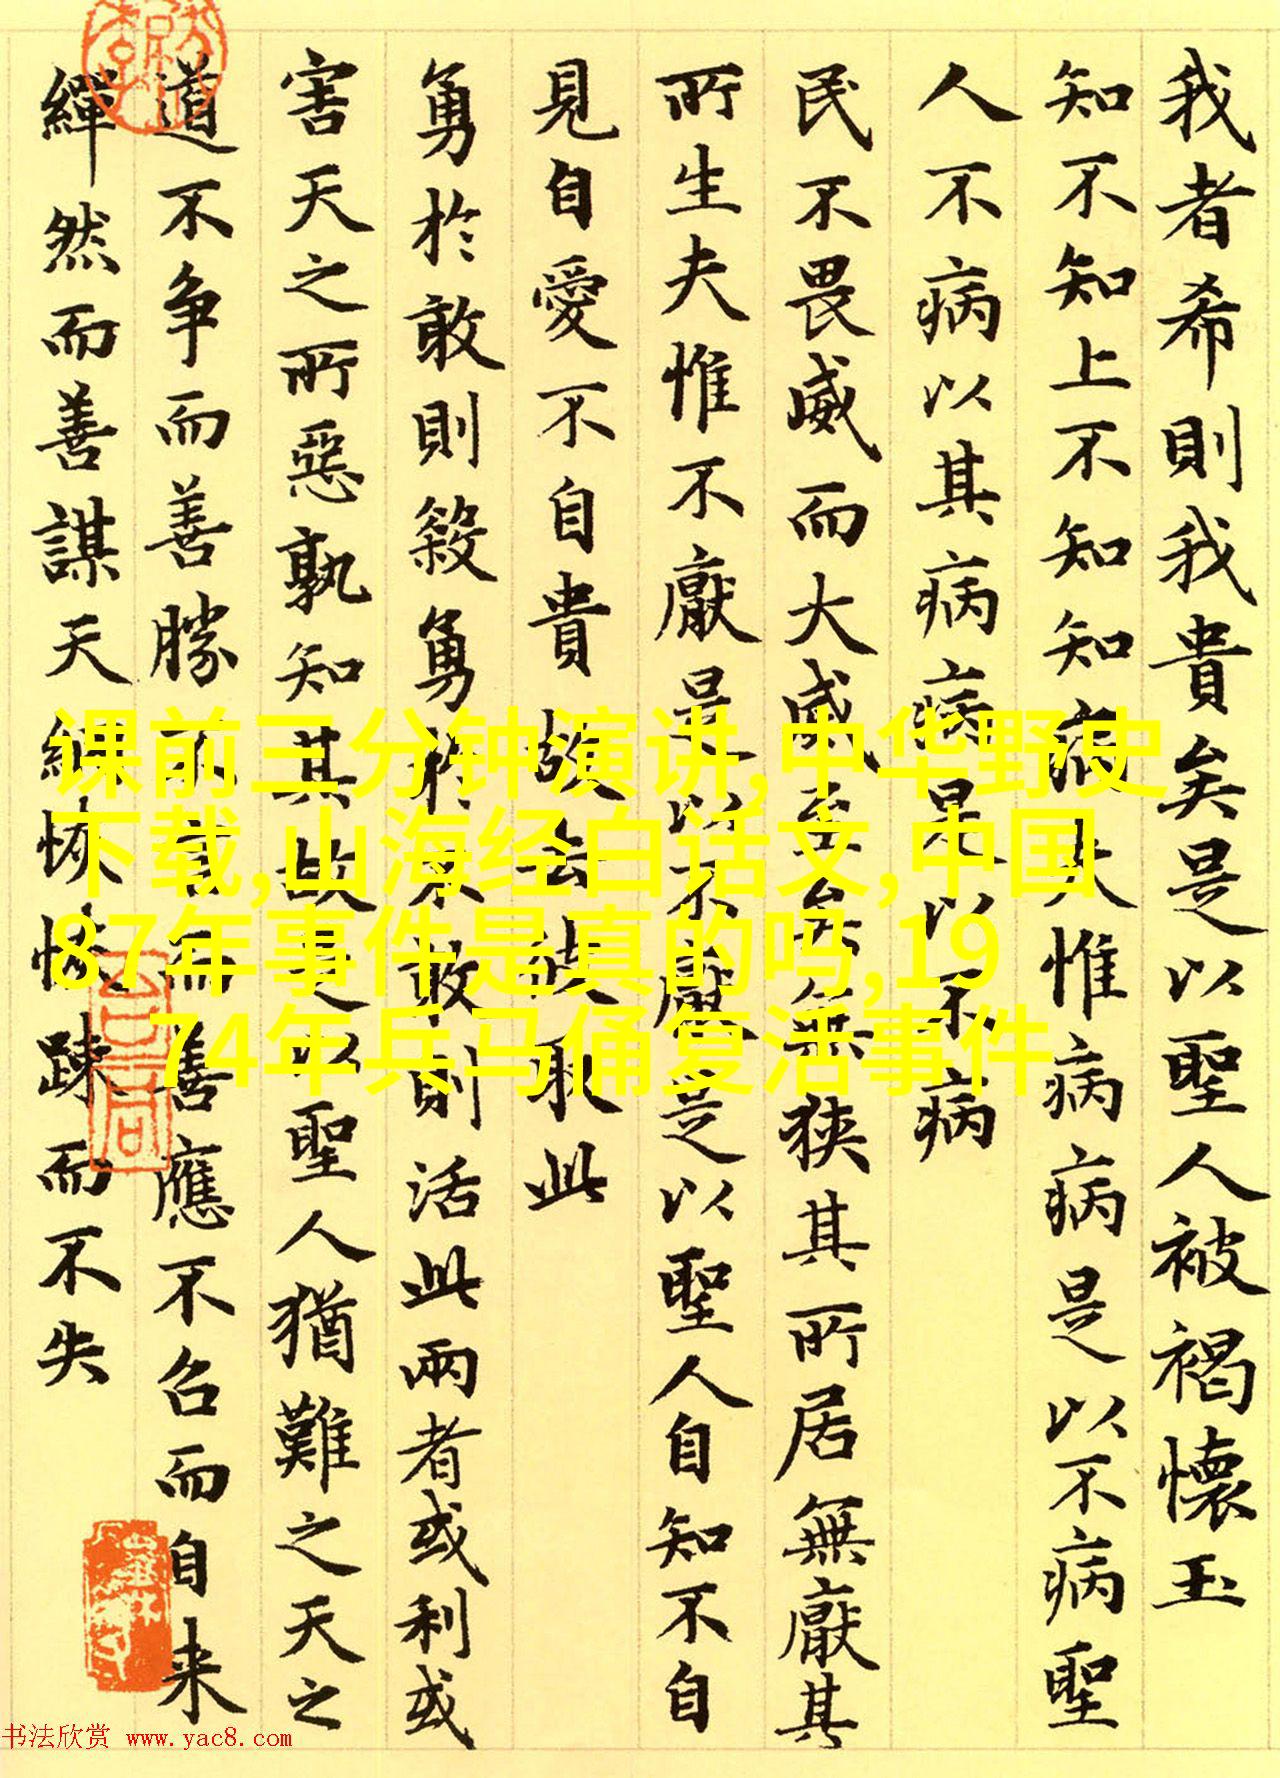 我者希則我貴矣是以聖人被褐懷玉
知不知上不知知病夫惟病病是以不病聖
人不病以其病病是以不病
民不畏威而大威至矣無狹其所居無厭其
所生夫惟不厭是以不厭是以聖人自知不自
見自愛不自貴故去彼取此
勇於敢則殺勇於不敢則活此兩者或利或
害天之所惡孰知其故是以聖人猶難之天之
道不争而善勝不言而善應不召而自来
繟然而善謀天網恢恢踈而不失
课前三分钟演讲,中华野史
下载,山海经白话文,中国
87年事件是真的吗,19
74年兵马俑复活事件
书法欣赏 www.yac8.com